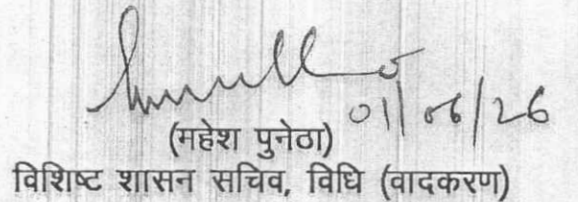 01/06/26
(महेश पुनेठा)
विशिष्ट शासन सचिव, विधि (वादकरण)